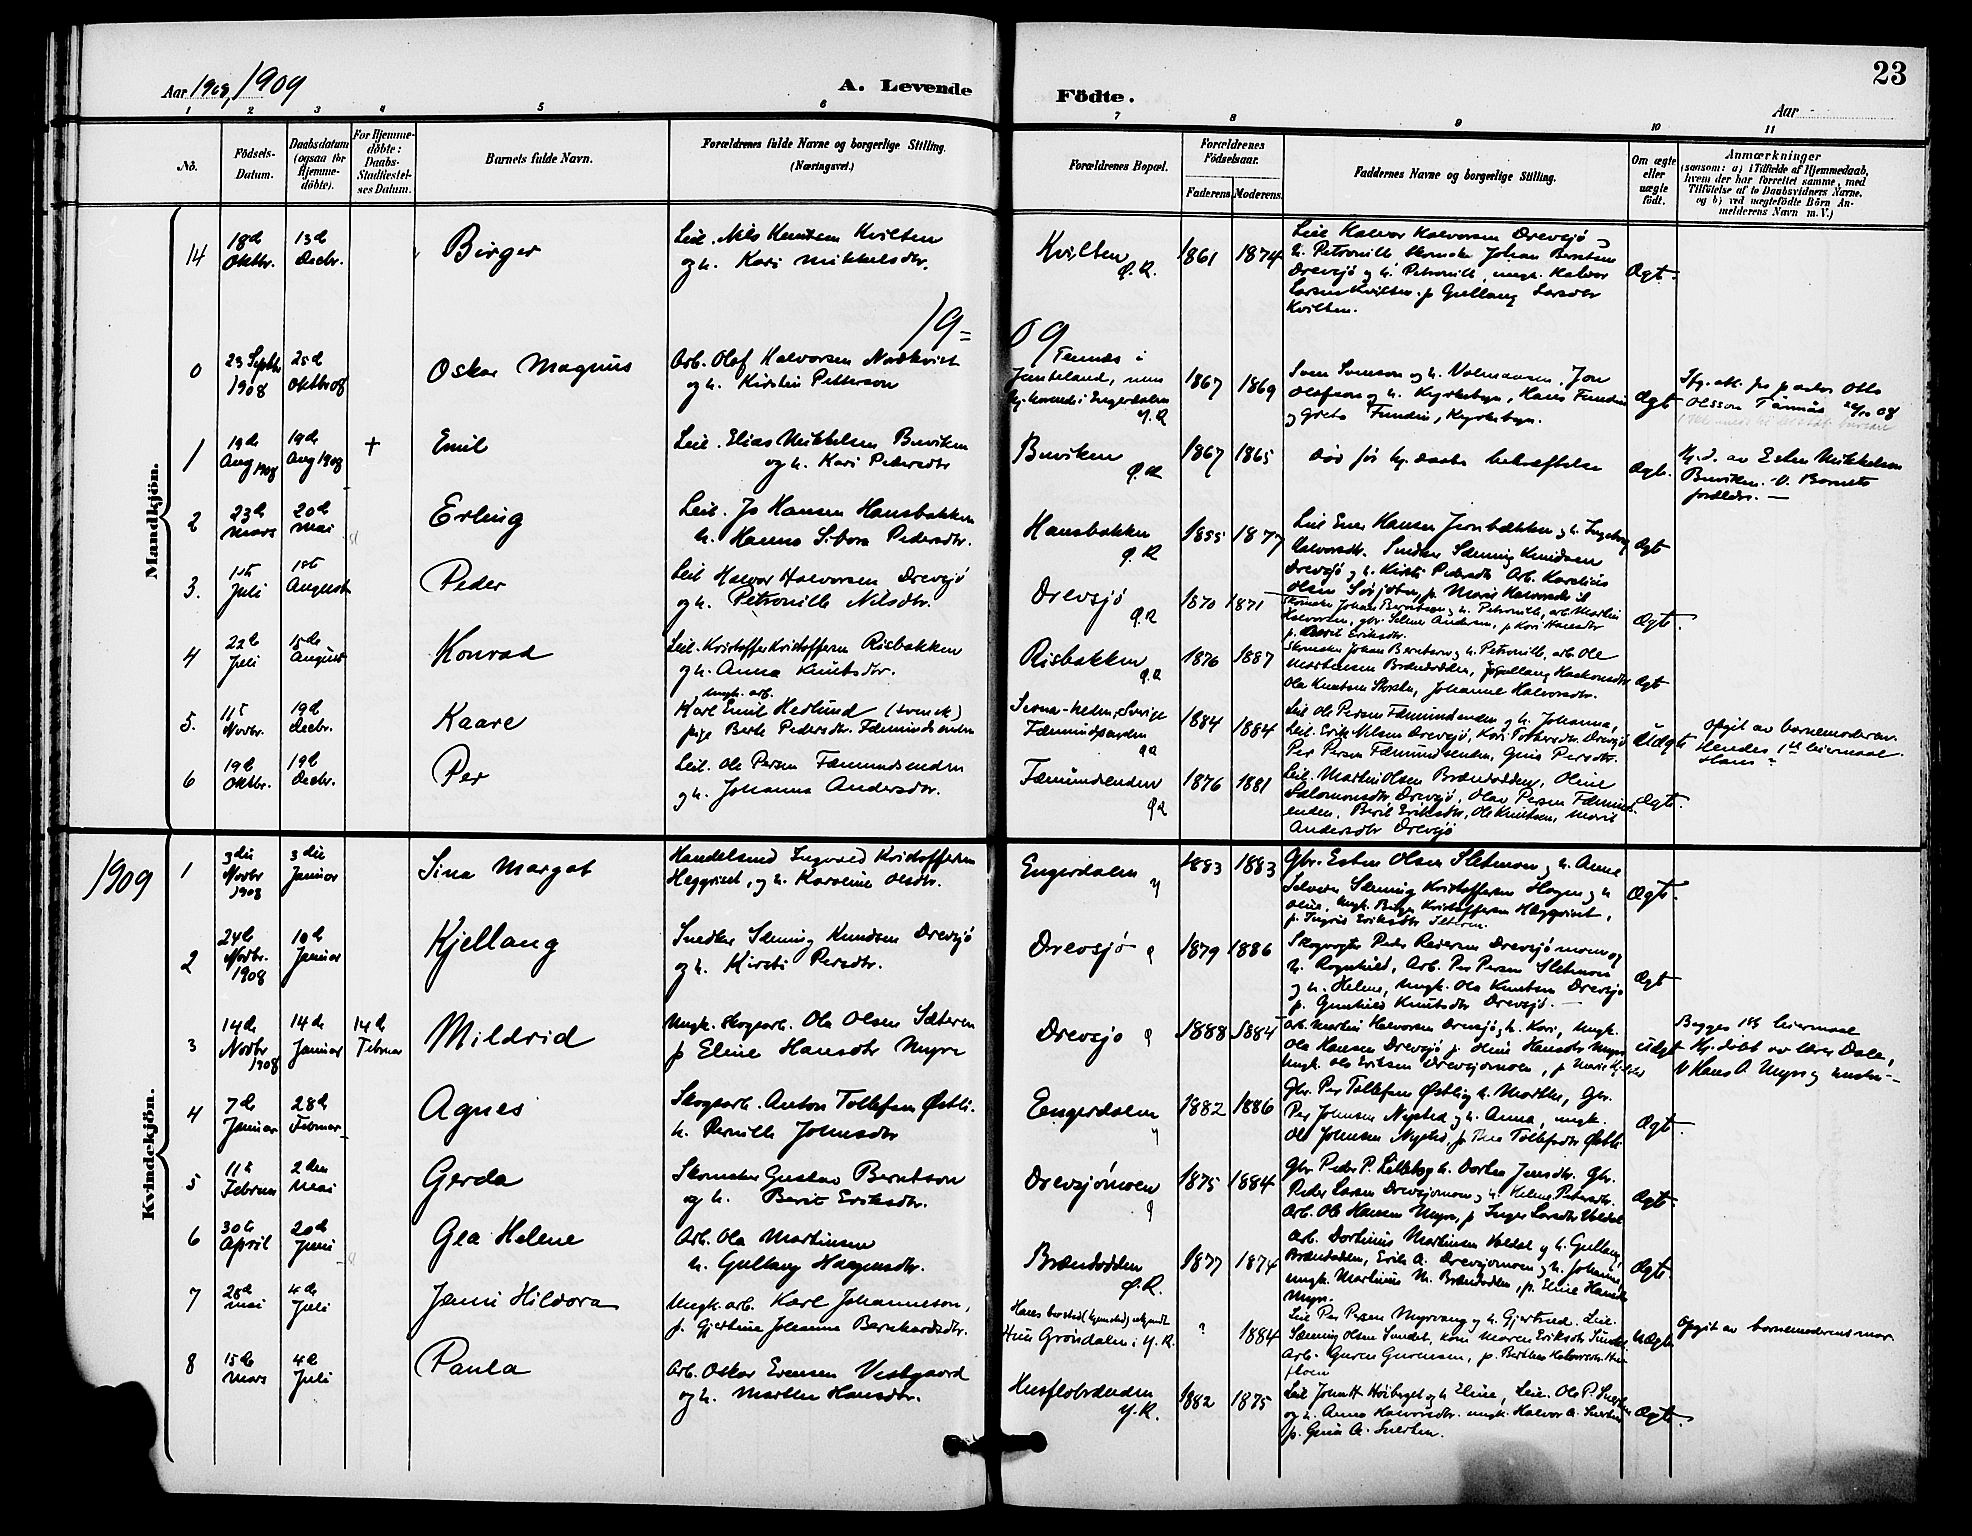 Aar 1908, 1909
A. Levende Födte.
Aar
23
1 2 3 4 5 6 7 8 9 10 11
No.
Födsels-Datum.
Daabsdatum (ogsaa for Hjemme-döbte).
For Hjemme-döbte: Daabs-Stadfæstel-ses Datum.
Barnets fulde Navn.
Forældrenes fulde Navne og borgerlige Stilling. (Næringsvei.)
Forældrenes Bopæl.
Forældrenes Födselsaar.
Faderens Moderens.
Faddernes Navne og borgerlige Stilling.
Om ægte eller uægte födt.
Anmærkninger (saasom: a) i Tilfælde af Hjemmedaab, hvem der har forrettet samme, med Tilföielse af to Daabsvidners Navne. og b) ved uægtefödte Börn An-melderens Navn m. V.)
Mandkjön.
14 18d Oktbr. 13d Decbr. Birger
Leil. Nils Knutsen Kvilten
og h. Kari Mikkelsdtr.
Kvilten Ø.R. 1861 1874
Leil Halvor Halvorsen Drevsjø
h. Petronille, Skomaker Johan Berntsen
Drevsjø og h. Petronille, ungk. Halvor
Larsen Kvilten, p Gullaug Larsdtr
Kvilten.
Ægt.
19=09
0 23 Septbr 1908 25d Oktbr 08 Oskar Magnus
Arb. Olof Halvorsen Nordkvist
og h. Kirstin Petterson
Tennäs i
Jemteland, nu
i Engerdalen
Y.R
1867 1869
Sven Svenson og h. Jon
Olofson og h. Kyrkebyn, Hans Fundin
og Greta Fundin, Kyrkebyn.
Ægt
Ifg. att. fra pastor Otto
Olsson Tännäs 26/10 08
1 19de Aug 1908 19de Aug 1908 + Emil
Leil. Elias Mikkelsen Buviken
og h. Kari Pedersdtr
Buviken Ø.R 1867 1865
død før hj. daabs bekræftelse
Ægt.
Hj. d. av Esten Mikkelsen
Buviken. V. Barnets
forældre. —
2 23d Mars 20d Mai Erling
Leil. Jo Hansen Hansbakken
h. Hanna Pedersdtr.
Hansbakken Ø.R 1855 1877
Leil Ener Hansen og h. Ingeborg
Halvorsdtr. Snedker Sæming Knudsen
Drevsjø og h. Kirsti Pedersdtr. Arb. Karelius
Olsen p. Marie Halvorsdtr
Ægt
3. 1ste Juli 15de August Peder
Leil Halvor Halvorsen Drevsjø
og h. Petronille Nilsdtr.
Drevsjø Ø.R 1870 1871
Skomaker Johan Berntsen og h. Petronille, arb. Martin
Halvorsen, gbr. Andersen, p Kari Hansdtr
p. Berit Eriksdtr.
Ægt.
4 22d Juli 15de August Konrad
Leil. Kristoffer Kristoffersen Risbakken
og h. Anna Knutsdtr.
Risbakken Ø.R 1876 1887
Skomaker Johan Berntsen og h. Petronille, arb Ole
Martinsen Brændodden, p Gullaug Haakonsdtr
Ola Knutsen Johanne Halvorsdtr.
Ægt
5. 11te Novbr. 19d Decbr. Kaare
Ungk. arb.
Karl Emil Hedlund (svensk)
pige Berte Pedersdtr. Fæmundsenden
Serna-heden, Sverige
Fæmundsenden
Ø.R
1884 1884
Leil Ole Persen Fæmundsenden og h. Johanna,
Leil. Erik Nilsen Drevsjø, Kari Tollefsdtr Drevsjø
Per Persen Fæmundsenden, Gina Persdtr.
Uægt
Opgit av barnemoderen.
Hendes 1ste leiermaal
Hans "
6 19d Oktbr. 19d Decbr. Per
Leil. Ole Persen Fæmundsenden
og h. Johanna Andersdtr.
Fæmundsenden Ø.R 1876 1881
Leil. Martin Olsen Brændodden, Oline
Salomonsdtr Drevsjø, Olav Persen Fæmunds-
enden, Berit Eriksdtr, Ole Knutsen, Marit
Andersdtr Drevsjø
Ægt.
1909
Kvindekjön.
1 3die Novbr 1908 3die Januar Sina Margot
Handelsmd Ingvald Kristoffersen
Heggvist, og h. Karoline Olsdtr.
Engerdalen Y 1883 1883
Gbr. Esten Olsen Sletmoen og h. Anne
Sæming Kristoffersen Hogen og h
Oline, ungk. Birger Kristoffersen Heggvist,
p. Ingrid Eriksdtr
Ægt.
2 24d Novbr. 1908 10d Januar Kjellaug
Snedker Sæming Knudsen Drevsjø
og h. Kirsti Persdtr.
Drevsjø Ø 1879 1886
Skogvogter Peder Pedersen Drevsjømoen og
h. Ragnhild, Arb. Per Persen Sletmoen
og h. Helene, ungk. Ola Knutsen Drevsjø
p. Gunhild Knutsdtr Drevsjø. —
Ægt
3 14de Novbr 1908 14de Januar 14de Februar Mildrid
Ungk. Skogsarb. Ola Olsen Sæteren
p Eline Hansdtr Myre
Drevsjø Ø 1888 1884
Arb. Martin Halvorsen Drevsjø og h. Kari, ungk.
Ola Hansen Drevsjø p. Oline Hansdtr Myre
ungk. Ola Eriksen Drevsjømoen, p Marie
Uægt
Begges 1ste leiermaal
Hj. døbt av lærer Dale,
V Hans A Myre og hustru —
4 7de Januar 28de Februar Agnes
Skogsarb. Anton Tollefsen Østli.
h. Pernille Johnsdtr
Engerdalen Y 1882 1886
Gbr. Per Tollefsen Østli og h. Marthe, Gbr.
Per Johnsen Nysted og h. Anna, ungk.
Ole Johnsen Nysted, p Thea Tollefsdtr Østli
Ægt.
5 11te Februar 2den Mai Gerda
Skomaker Gustav Berntson
og h. Berit Eriksdtr.
Drevsjømoen Ø 1875 1884
Gbr Peder P. Lillebo og h. Dortea Jensdtr. Gbr.
Peder Larsen Drevsjømoen og h. Helene Petersdtr.
Arb. Ole Hansen Myre, p Inger Larsdtr Valdal
Ægt.
6 30te April 20de Juni Gea Helene
Arb. Ola Martinsen
h. Gullaug Haagensdtr.
Brændodden Ø.R. 1877 1874
Arb. Dortinus Martinsen Valdal og h. Gullaug,
Brændodden, Erik A. Drevsjømoen og h. Johanne,
ungk. Martinus M. Brændodden, p. Eline Hansdtr
Myr.
Ægt.
7 28de Mai 4de Juli Jenni Hildora
Ungk. arb. Karl Johanneson,
p. Gjertine Johanne Bernhardsdtr.
Hans bosted (hjemsted) ukjendt
Hun Grøndalen i Y.R.
? 1884
Leil Per Persen Myrvang og h. Gjertrud. Leil.
Sæming Olsen Sundet, kone Maren Eriksdtr Sundet
Arb. Guren Gurensen, p. Berthe Halvorsdtr Hus-
floen
Uægte
Opgit av barnemoderens mor
8 15de Mars 4de Juli Paula
Arb. Oskar Evensen Vestgaard
og h. Marthe Hansdtr.
Husfloaenden Y.R. 1882 1875
Leil Jonatt Høiberget og h Eline, Leil. Ole P. Snerten
og h. Anne Halvorsdtr. ungk. Halvor A. Snerten
p. Gina A. Snerten.
Ægte